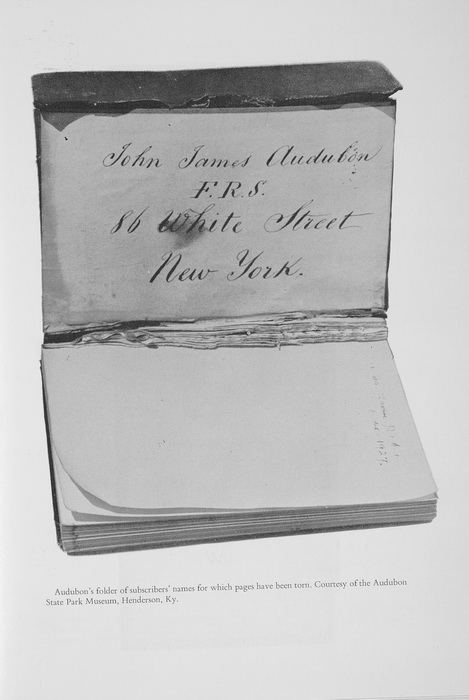 John James Audubon
F.R.S.
86 White Street
New York.
Audubon's folder of subscribers' names for which pages have been torn. Courtesy of the Audubon
State Park Museum, Henderson, Ky.